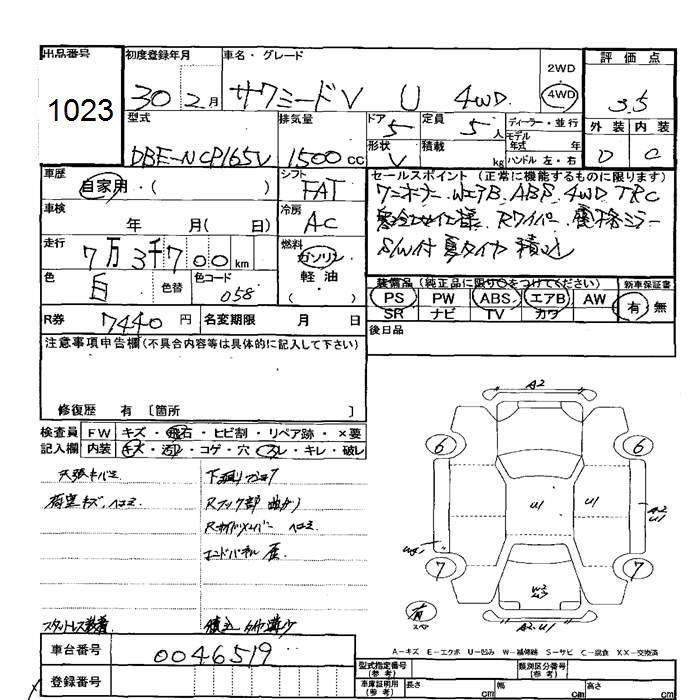 出品番号 初度登録年月 車名・グレード 評価点
1023
30 2月 サクシードV U 4WD 2WD 4WD 3.5
型式 排気量 ドア 5 定員 5人 ディーラー・並行 外装 内装
DBE-NCP165V 1500cc 形状 V 積載 kg モデル年式 年 ハンドル 左・右 D C
車歴 自家用・( ) シフト FAT セールスポイント(正常に機能するものに限ります)
ワンオーナー WエアB ABS 4WD TRC
車検 年 月( 日) 冷房 AC Rワイパー
S/W付 夏タイヤ積込
走行 7万3千700km 燃料 ガソリン 軽油 ( )
色 白 色替 色コード 058
装備品(純正品に限り○をつけてください) 新車保証書
PS PW ABS エアB AW 有・無
SR ナビ TV カワ
R券 7440円 名変期限 月 日 後日品
注意事項申告欄(不具合内容等は具体的に記入して下さい)
修復歴 有〔箇所 〕
検査員 FW キズ・飛石・ヒビ割・リペア跡・×要
記入欄 内装 キズ・汚レ・コゲ・穴・スレ・キレ・破レ
天張キバミ
荷室キズ、ヘコミ
Rフック部 曲がり
Rサイドメンバー ヘコミ
エンドパネル 歪
スタットレス装着
積込
A2
6 6
U1 U1
A2
U1
7 7
有
スペア
A2.U1
A-キズ E-エクボ U-凹み W-補修跡 S-サビ C-腐食 XX-交換済
車台番号 0046519
登録番号
型式指定番号(参考) 類別区分番号(参考)
車庫証明用(参考) 長さ cm 幅 cm 高さ cm